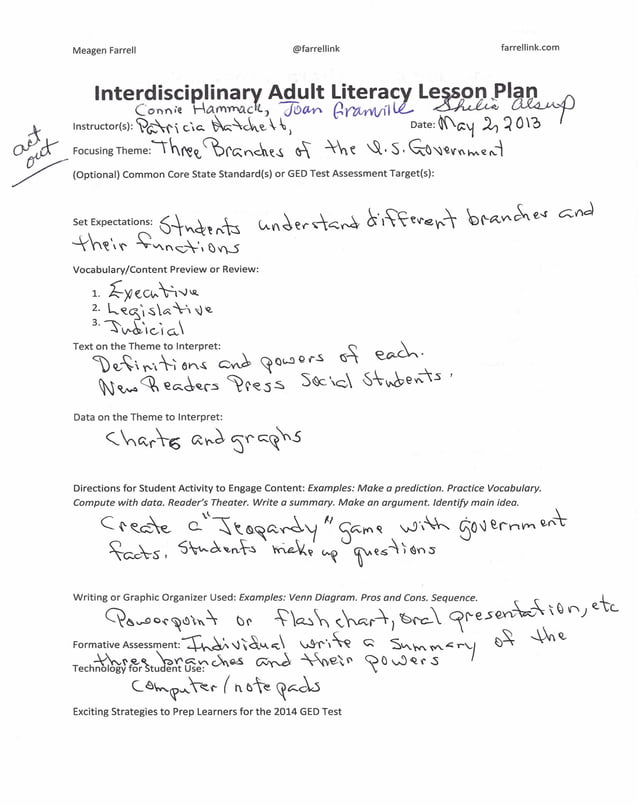 Meagen Farrell @farrellink farrellink.com
Interdisciplinary Adult Literacy Lesson Plan
Connie Hammack, Joan Granville Shelia Alsup
Instructor(s): Patricia Hatchett, Date: May 2, 2013
act out
Focusing Theme: Three Branches of the U.S. Government
(Optional) Common Core State Standard(s) or GED Test Assessment Target(s):
Set Expectations: Students understand different branches and
their functions
Vocabulary/Content Preview or Review:
1. Executive
2. Legislative
3. Judicial
Text on the Theme to Interpret:
Definitions and powers of each.
New Readers Press Social Students.
Data on the Theme to Interpret:
Charts and graphs
Directions for Student Activity to Engage Content: Examples: Make a prediction. Practice Vocabulary.
Compute with data. Reader's Theater. Write a summary. Make an argument. Identify main idea.
Create a "Jeopardy" game with government
facts. Students make up questions
Writing or Graphic Organizer Used: Examples: Venn Diagram. Pros and Cons. Sequence.
Powerpoint or flash chart, oral presentation, etc
Formative Assessment: Individual write a summary of the
three branches and their powers
Technology for Student Use:
Computer/note pads
Exciting Strategies to Prep Learners for the 2014 GED Test